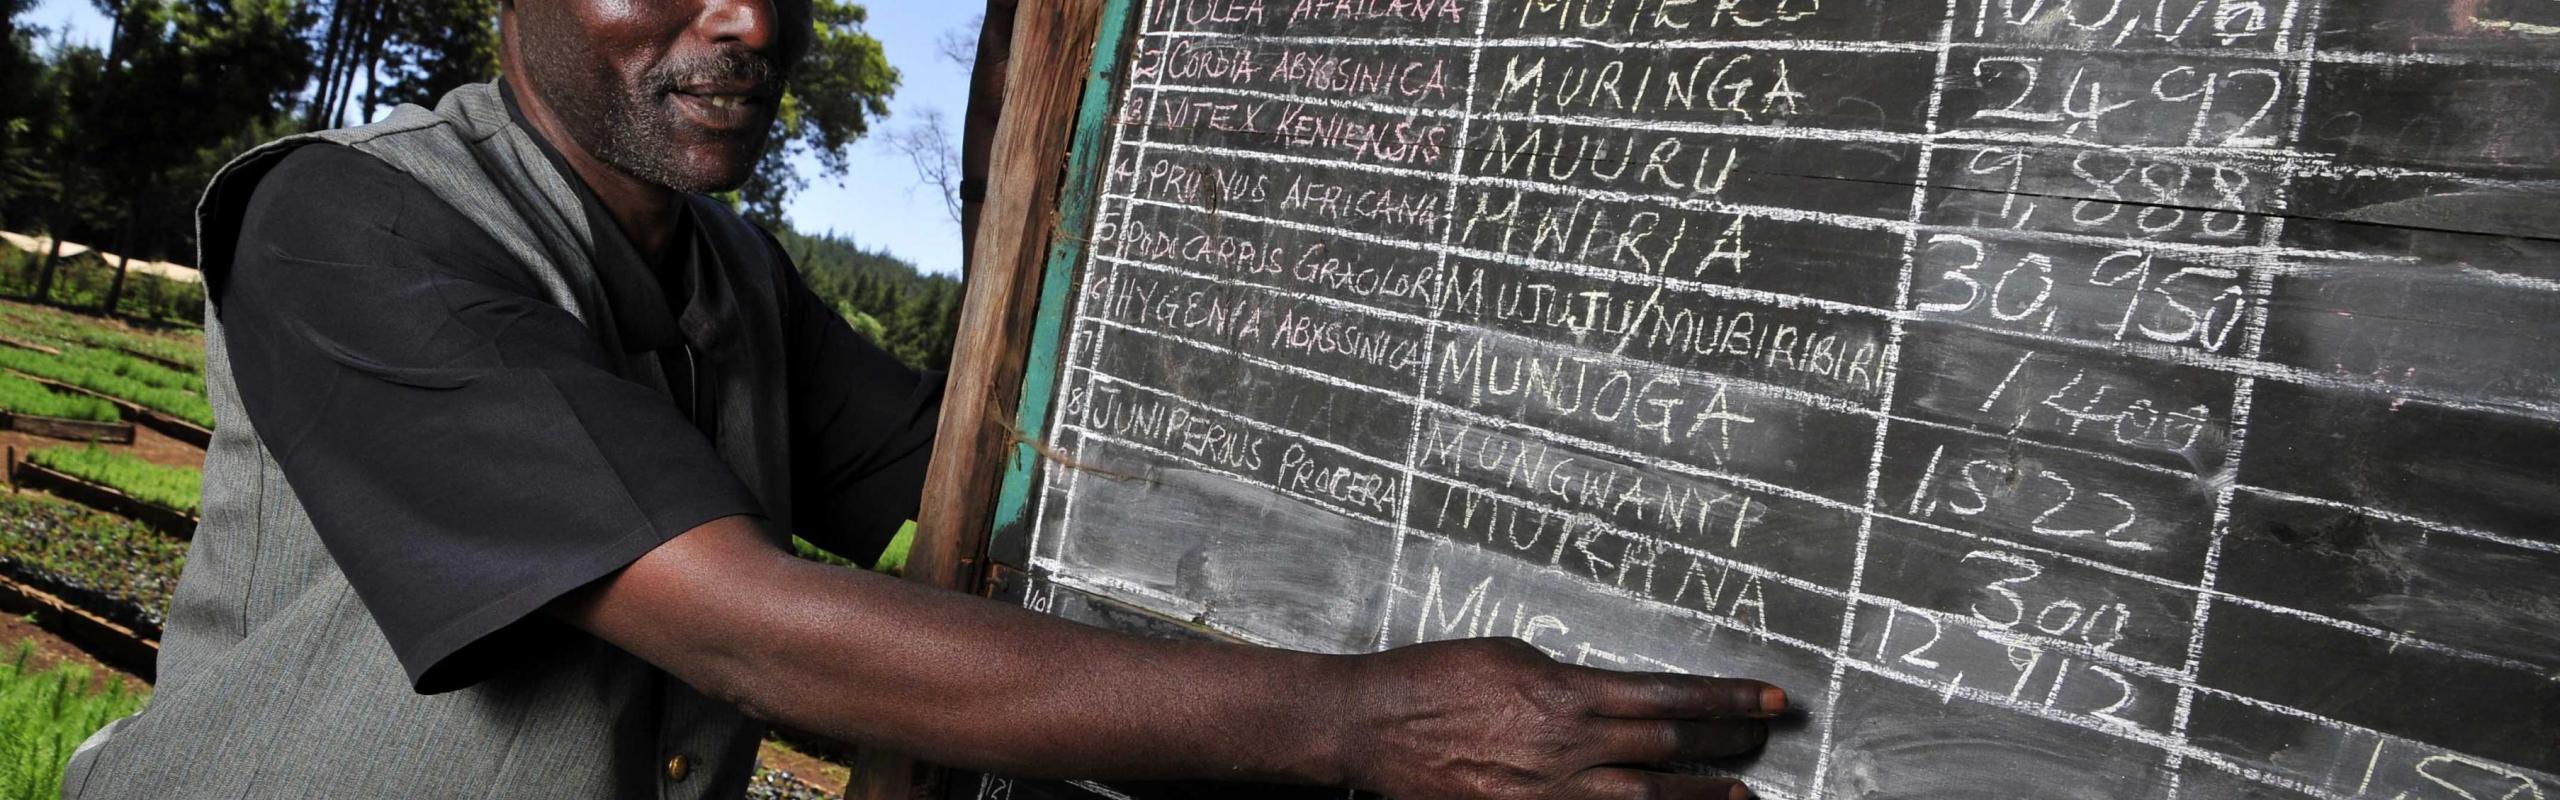 1 OLEA AFRICANA MUTERO
2 CORDIA ABYSSINICA MURINGA 2,492
3 VITEX KENIENSIS MUURU 9,888
4 PRUNUS AFRICANA MWIRIA 30,950
5 PODOCARPUS GRACLOR MUJUJU/MUBIRIBIRI 1,400
6 HYGENIA ABYSSINICA MUNJOGA 1,522
7 MUNGWANYI 300
8 JUNIPEROUS PROCERA MUTARANA 12,912
9
10
12